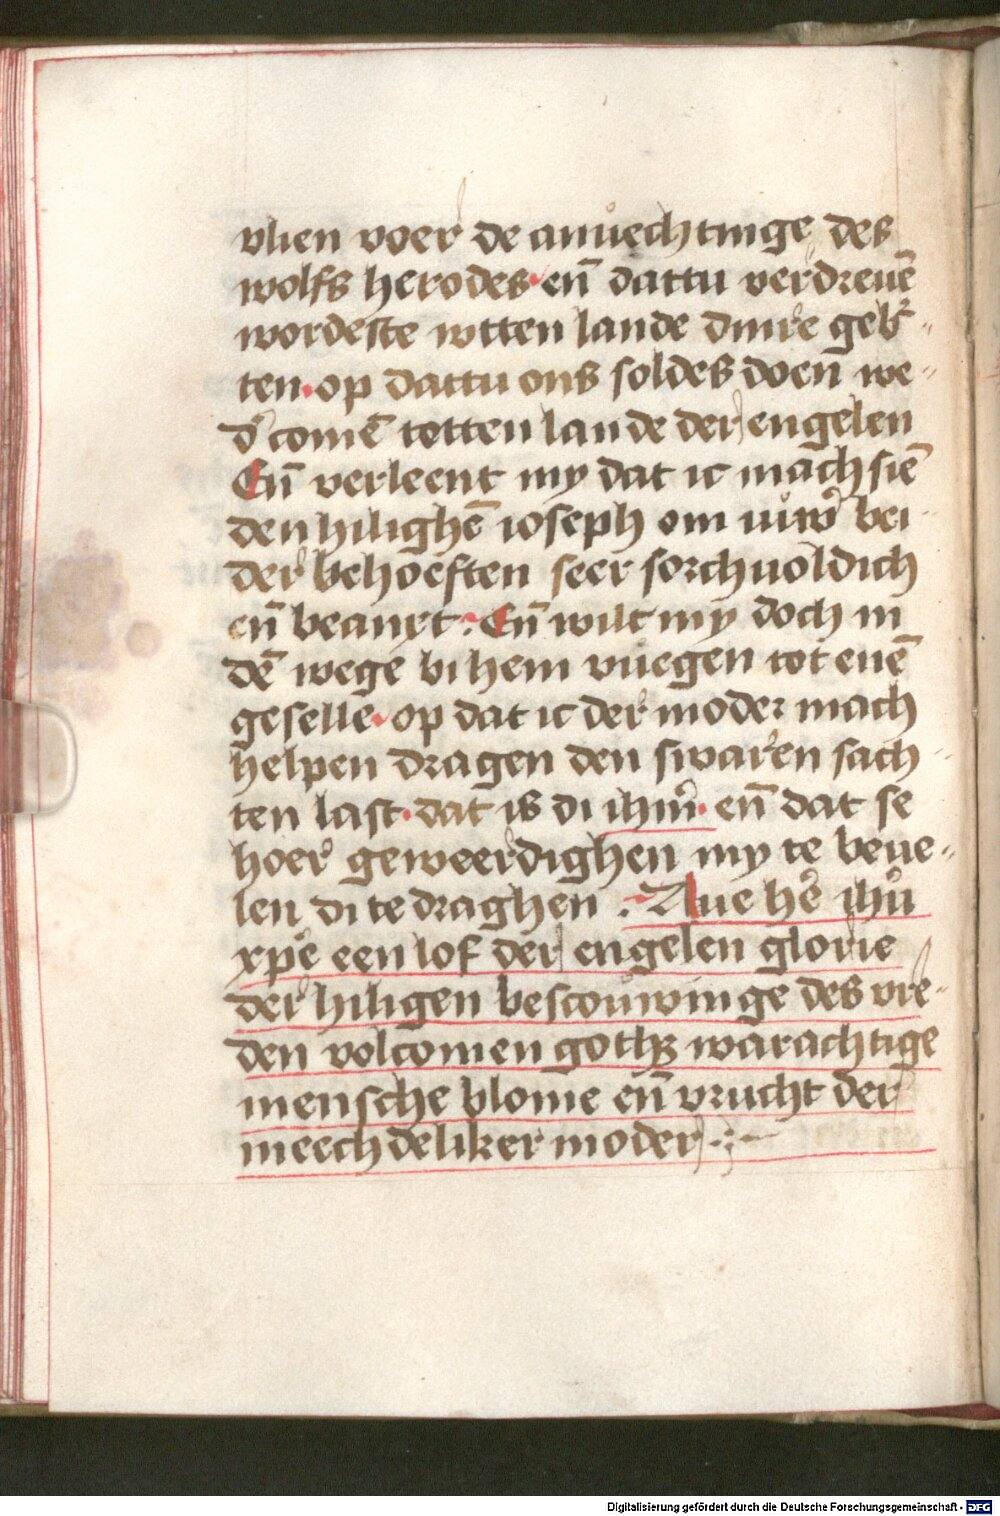 vlien voer de anuechtinge des
wolfs herodes· en̄ dattu verdreuē
wordeste wtten lande dinre geb͛-
ten· op dattu ons soldes doen we-
d͛ comē totten lande der engelen
En̄ verleent my dat ic mach siē
den hilighē ioseph om uwͦ bei-
der behoeften seer sorchuoldich
en̄ beanxt· En̄ wilt my doch in
dē wege bi hem vuegen tot enē
geselle· op dat ic der moder mach
helpen dragen den swaren sach-
ten last· dat is di ihm̄· en̄ dat se
hoer geweerdighen my te beue-
len di te draghen. Aue he͛ ihū
xp̄e een lof der engelen glorie
der hiligen bescouwinge des vre-
den volcomen goth warachtige
mensche blome en̄ vrucht der
meechdeliker moder
Digitalisierung gefördert durch die Deutsche Forschungsgemeinschaft - DFG